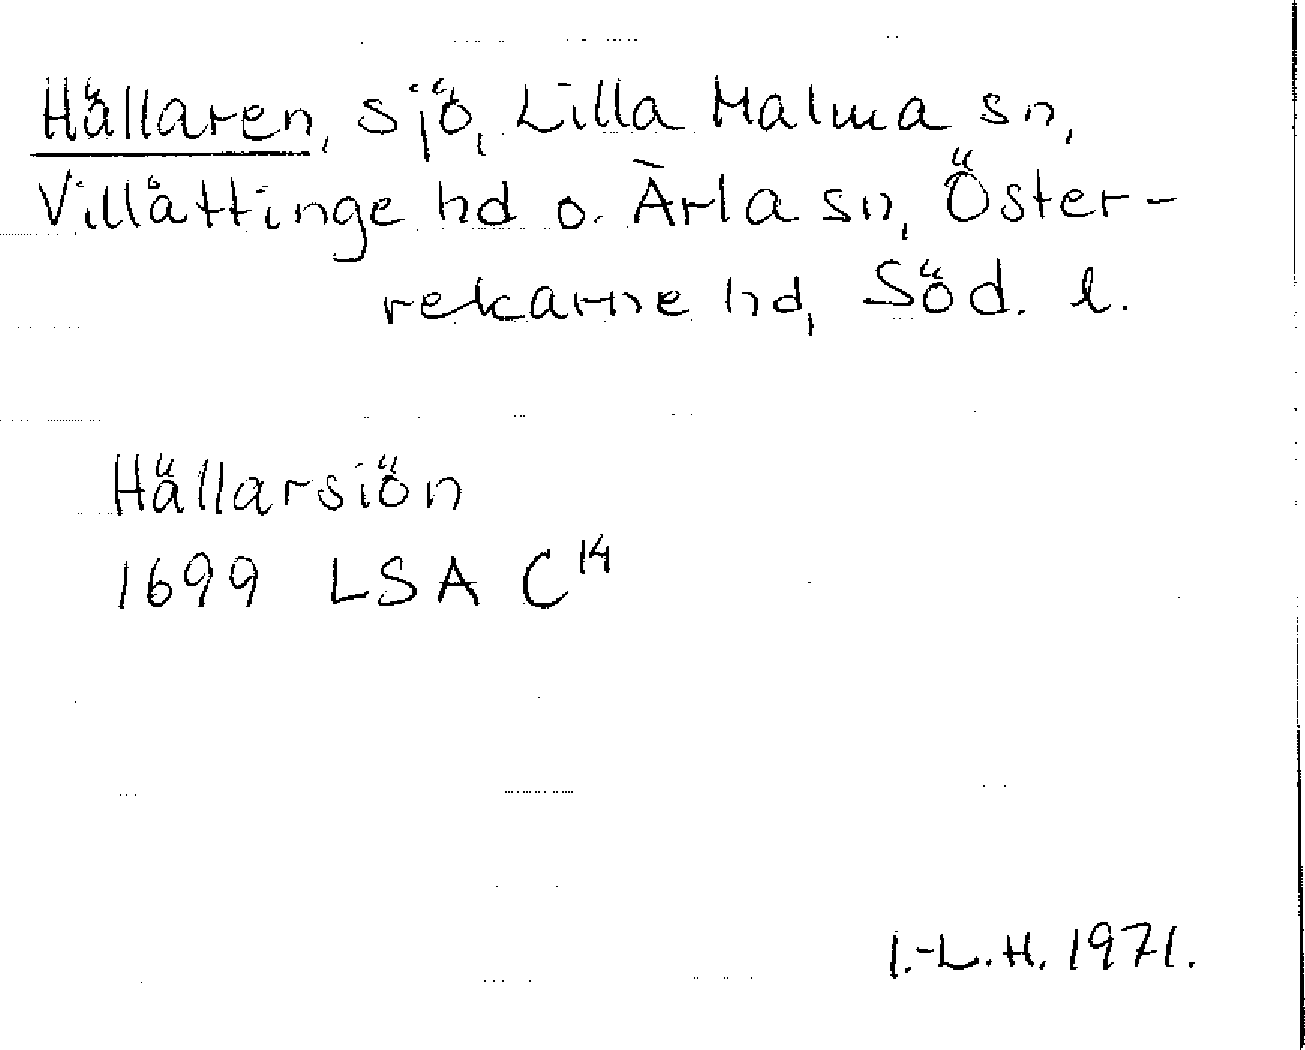 Hällaren, sjö, Lilla Malma sn,
Villåttinge hd o. Ärla sn, Öster-
rekarne hd, Söd. l.
Hällarsiön
1699 LSA C14
I.-L.H. 1971.